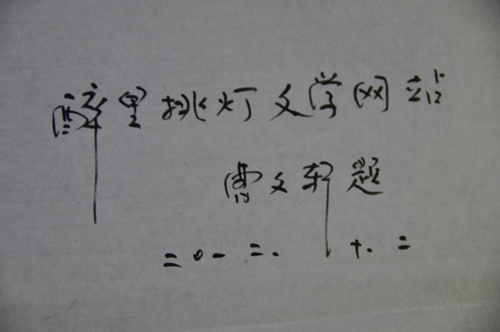 醉里挑灯文学网站
曹文轩题
二〇一二.十.二